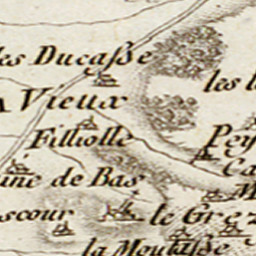 les Ducaſse
les l
A Vieux
Filliolle
Pey
Ca
ine de Bas
M
scour
le Grez
la Moutasse